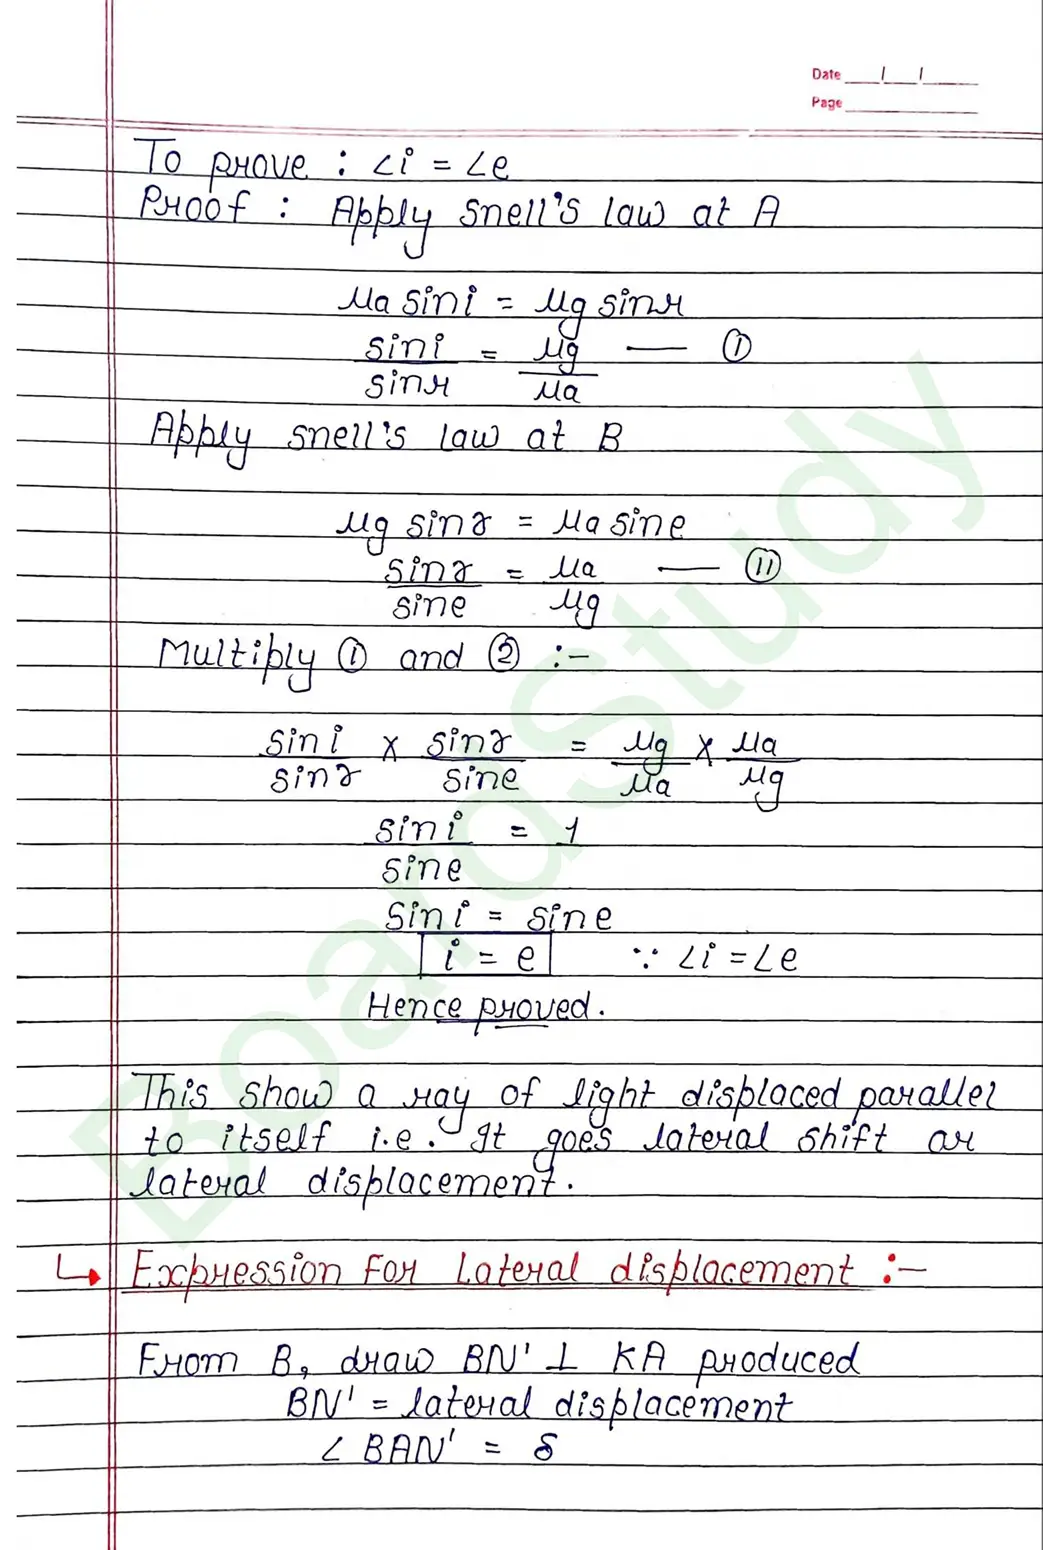 Date / /
Page
To prove : ∠i = ∠e
Proof : Apply snell's law at A
μa sin i = μg sin r
sin i / sin r = μg / μa — ①
Apply snell's law at B
μg sin r = μa sin e
sin r / sin e = μa / μg — ⑪
Multiply ① and ② :-
sin i / sin r × sin r / sin e = μg / μa × μa / μg
sin i / sin e = 1
sin i = sin e
i = e ∵ ∠i = ∠e
Hence proved.
This show a ray of light displaced parallel
to itself i.e. It goes lateral shift or
lateral displacement.
↳ Expression For Lateral displacement :-
From B, draw BN' ⊥ KA produced
BN' = lateral displacement
∠ BAN' = δ
BoardStudy